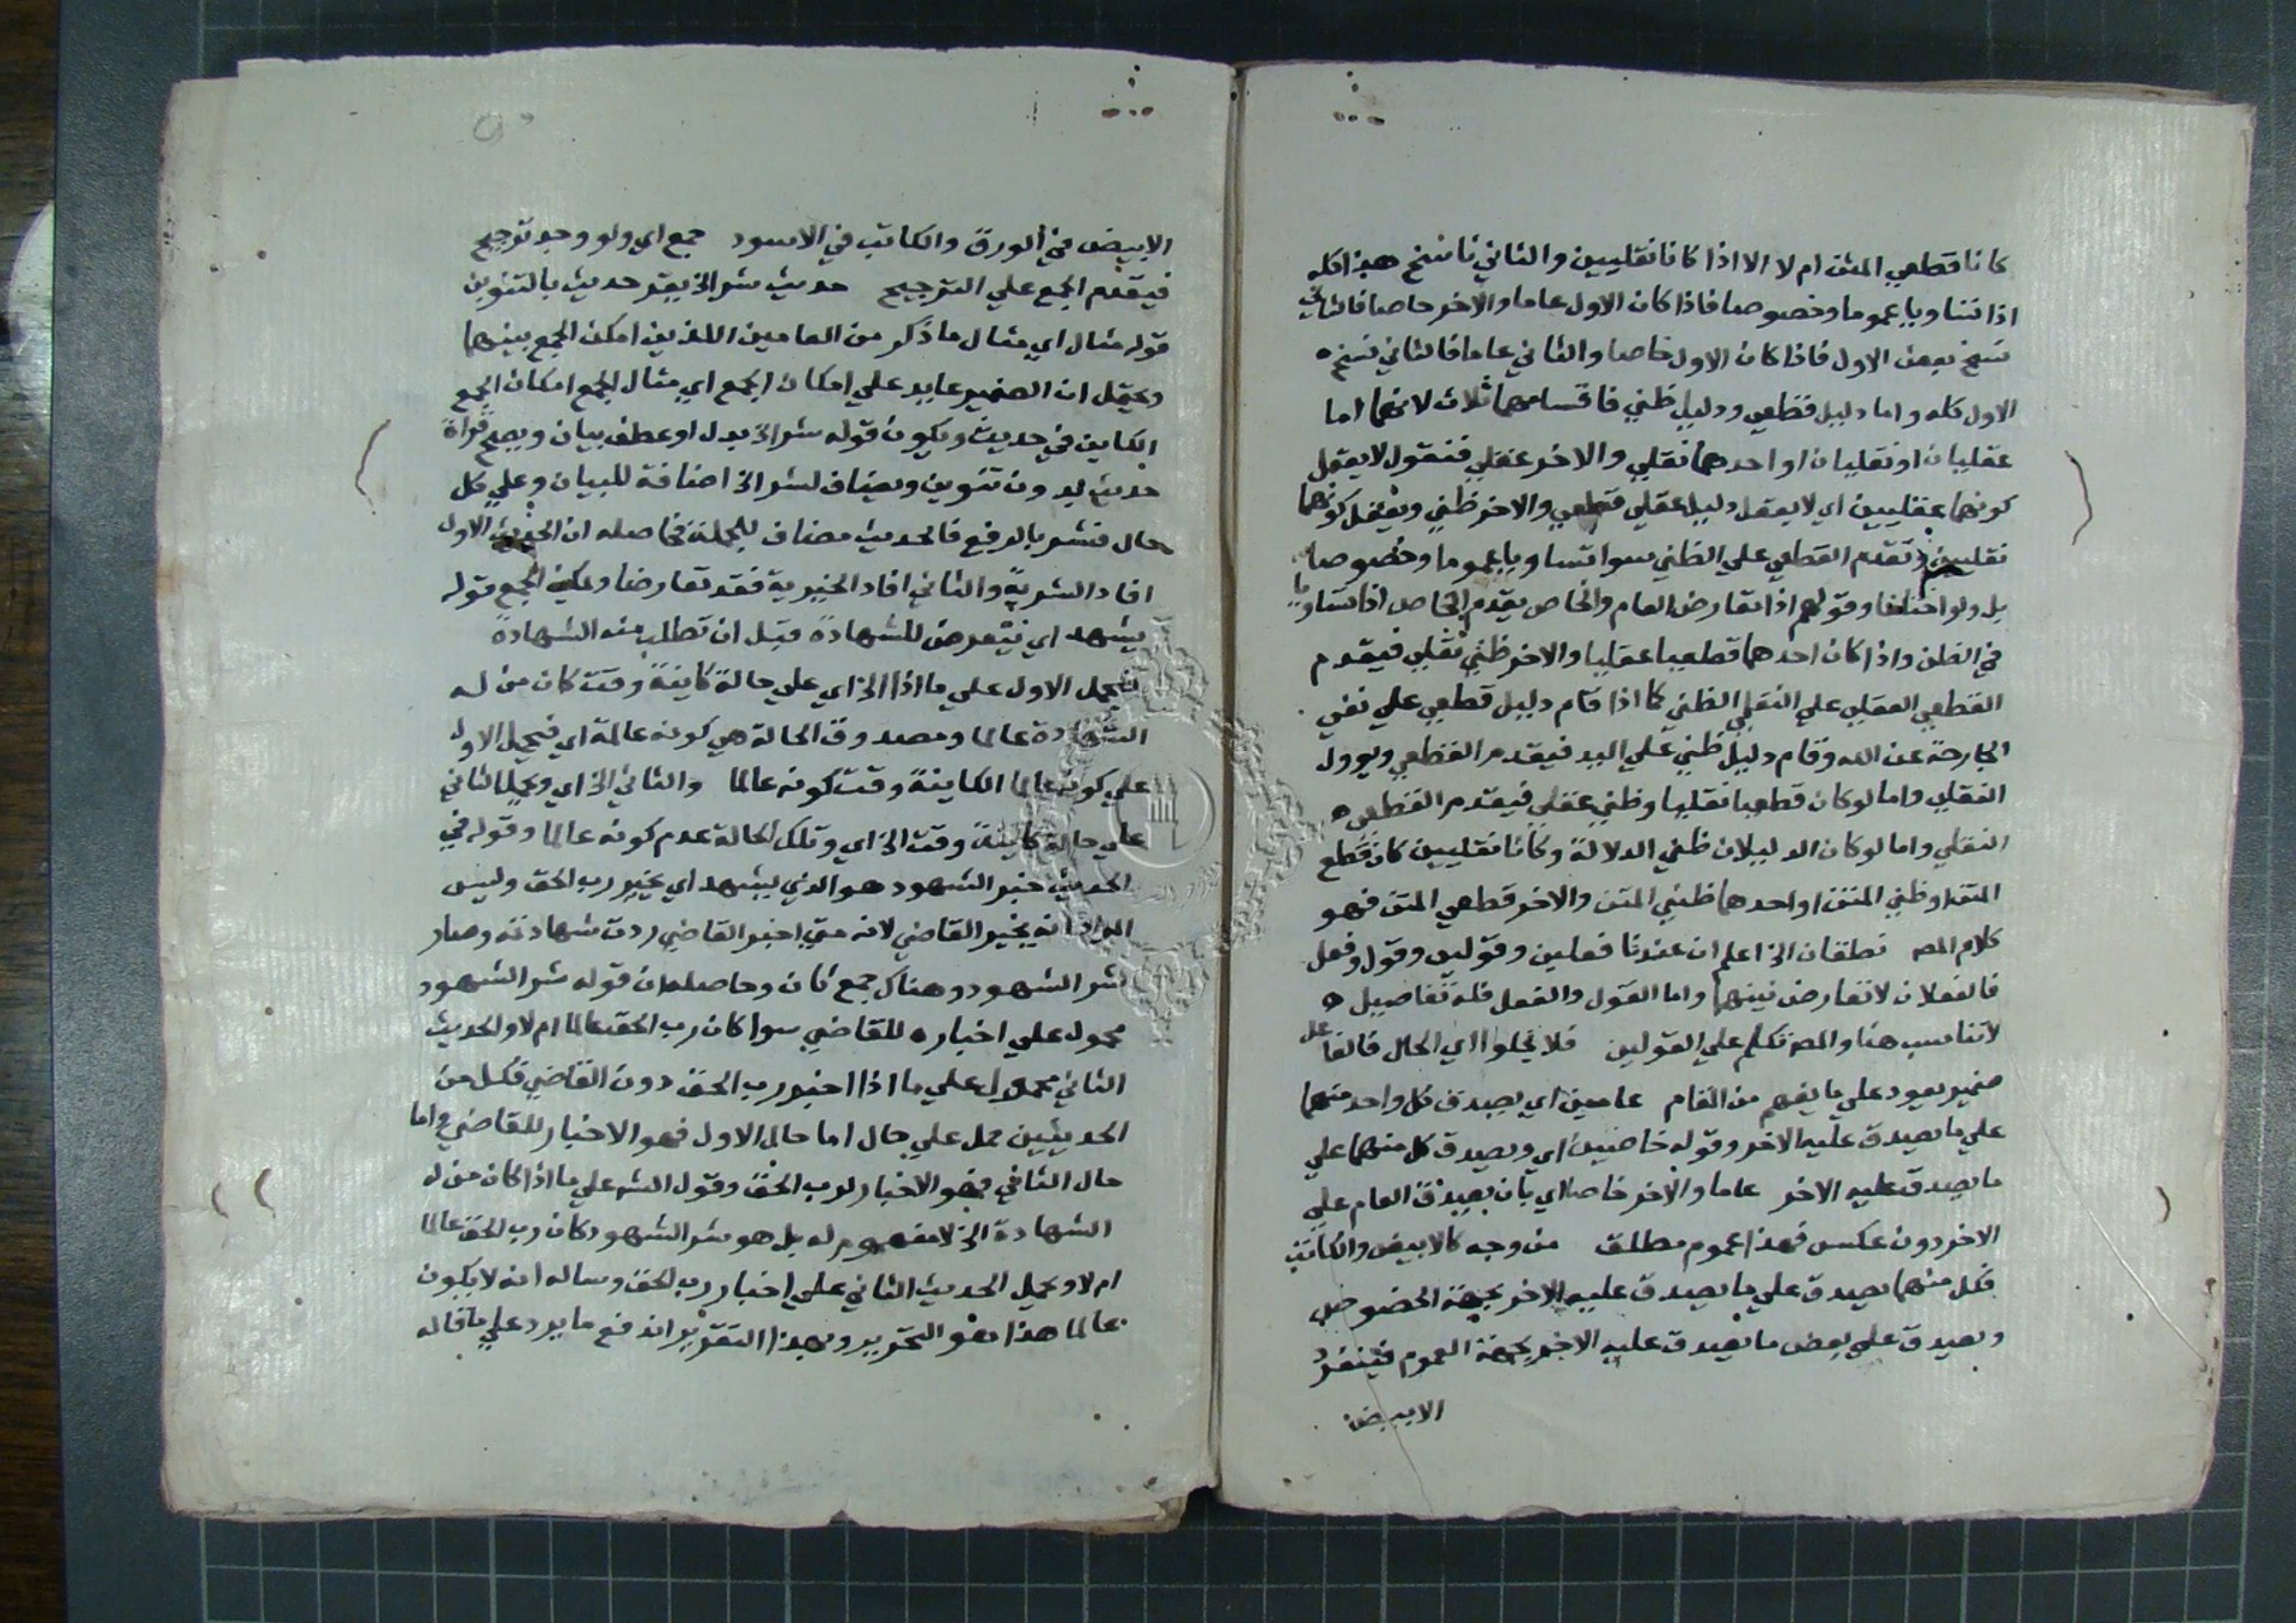 كانا قطعي المتن ام لا الا اذا كانا نقليين والثاني ناسخ هذا كله
اذا تساويا عموما وخصوصا فاذا كان الاول عاما والاخر خاصا فالثاني
نسخ بعض الاول فاذا كان الاول خاصا والثاني عاما فالثاني نسخ
الاول كله واما دليل قطعي ودليل ظني فاقسامهما ثلاث لانهما اما
عقليان او نقليان او احدهما نقلي والاخر عقلي فنقول لا يعقل
كونهما عقليين اي لا يعقل دليل عقلي قطعي والاخر ظني ويعقل كونهما
نقليين وتقدم القطعي علي الظني سوا تساويا عموما وخصوصا
بل ولو اختلفا وقولهم اذا تعارض العام والخاص يقدم الخاص اذا تساويا
في الظن واذا كان احدهما قطعيا عقليا والاخر ظني نقلي فيقدم
القطعي العقلي علي النقلي الظني كما اذا قام دليل قطعي علي نفي
الجارحة عن الله وقام دليل ظني علي اليد فيقدم القطعي ويوول
النقلي واما لو كان قطعيا نقليا وظني عقلي فيقدم القطعي
النقلي واما لو كان الدليلان ظني الدلالة وكانا نقليين كان قطع
المتن او ظني المتن او احدهما ظني المتن والاخر قطعي المتن فهو
كلام المصـ نطقان الخ اعلم ان عندنا فعلين وقولين وقول وفعل
فالفعلان لا تعارض بينهما واما القول والفعل فله تفاصيل
لا تناسب هنا والمصـ تكلم علي القولين فلا يخلوا اي الحال فالفاعل
ضمير يعود علي ما يفهم من المقام عامين اي يصدق كل واحد منهما
علي ما يصدق عليه الاخر وقوله خاصين اي ويصدق كل منهما علي
ما يصدق عليه الاخر عاما والاخر خاصا اي بان يصدق العام علي
الاخر دون عكس فهذا عموم مطلق من وجه كالابيض والكاتب
فكل منهما يصدق علي ما يصدق عليه الاخر بجهة الخصوص
ويصدق علي بعض ما يصدق عليه الاخر بجهة العموم فينفرد
الابيض
الابيض في الورق والكاتب في الاسود جمع اي ولو وجد ترجيح
فيقدم الجمع علي الترجيح حديث شر الخ يقر حديث بالتنوين
قوله مثال اي مثال ما ذكر من العامين اللذين امكن الجمع بينهما
ويحتمل ان الضمير عايد علي امكان الجمع اي مثال الجمع امكان الجمع
الكاين في حديث ويكون قوله شر الخ بدل او عطف بيان ويصح قراة
حديث بدون تنوين ويضاف لشر الخ اضافة للبيان وعلي كل
حال فشر بالرفع فالحديث مضاف للجملة فحاصله ان الحديث الاول
افاد الشرية والثاني افاد الخيرية فقد تعارضا ويمكن الجمع قوله
يشهد اي يتعرض للشهادة قبل ان تطلب منه الشهادة
فيحمل الاول علي ما اذا الخ اي علي حالة كاينة وقت كان من له
الشهادة عالما ومصدوق الحالة هي كونه عالمة اي فيحمل الاول
علي كونه عالما الكاينة وقت كونه عالما والثاني الخ اي ويحمل الثاني
علي حالة كاينة وقت الخ اي وتلك الحالة عدم كونه عالما وقوله في
الحديث خير الشهود هو الذي يشهد اي يخبر رب الحق وليس
المراد انه يخبر القاضي لانه متي اخبر القاضي ردت شهادته وصار
شر الشهود وهناك جمع ثان وحاصله ان قوله شر الشهود
محمول علي اخباره للقاضي سوا كان رب الحق عالما ام لا والحديث
الثاني محمول علي ما اذا اخبر رب الحق دون القاضي فكل من
الحديثين حمل علي حال اما حال الاول فهو الاخبار للقاضي واما
حال الثاني فهو الاخبار لرب الحق وقول الشـ علي ما اذا كان من له
الشهادة الخ لا مفهوم له بل هو شر الشهود كان رب الحق عالما
ام لا ويحمل الحديث الثاني علي اخبار رب الحق وساله انه لا يكون
عالما هذا هو التحرير وبهذا التقرير اندفع ما يرد علي ما قاله